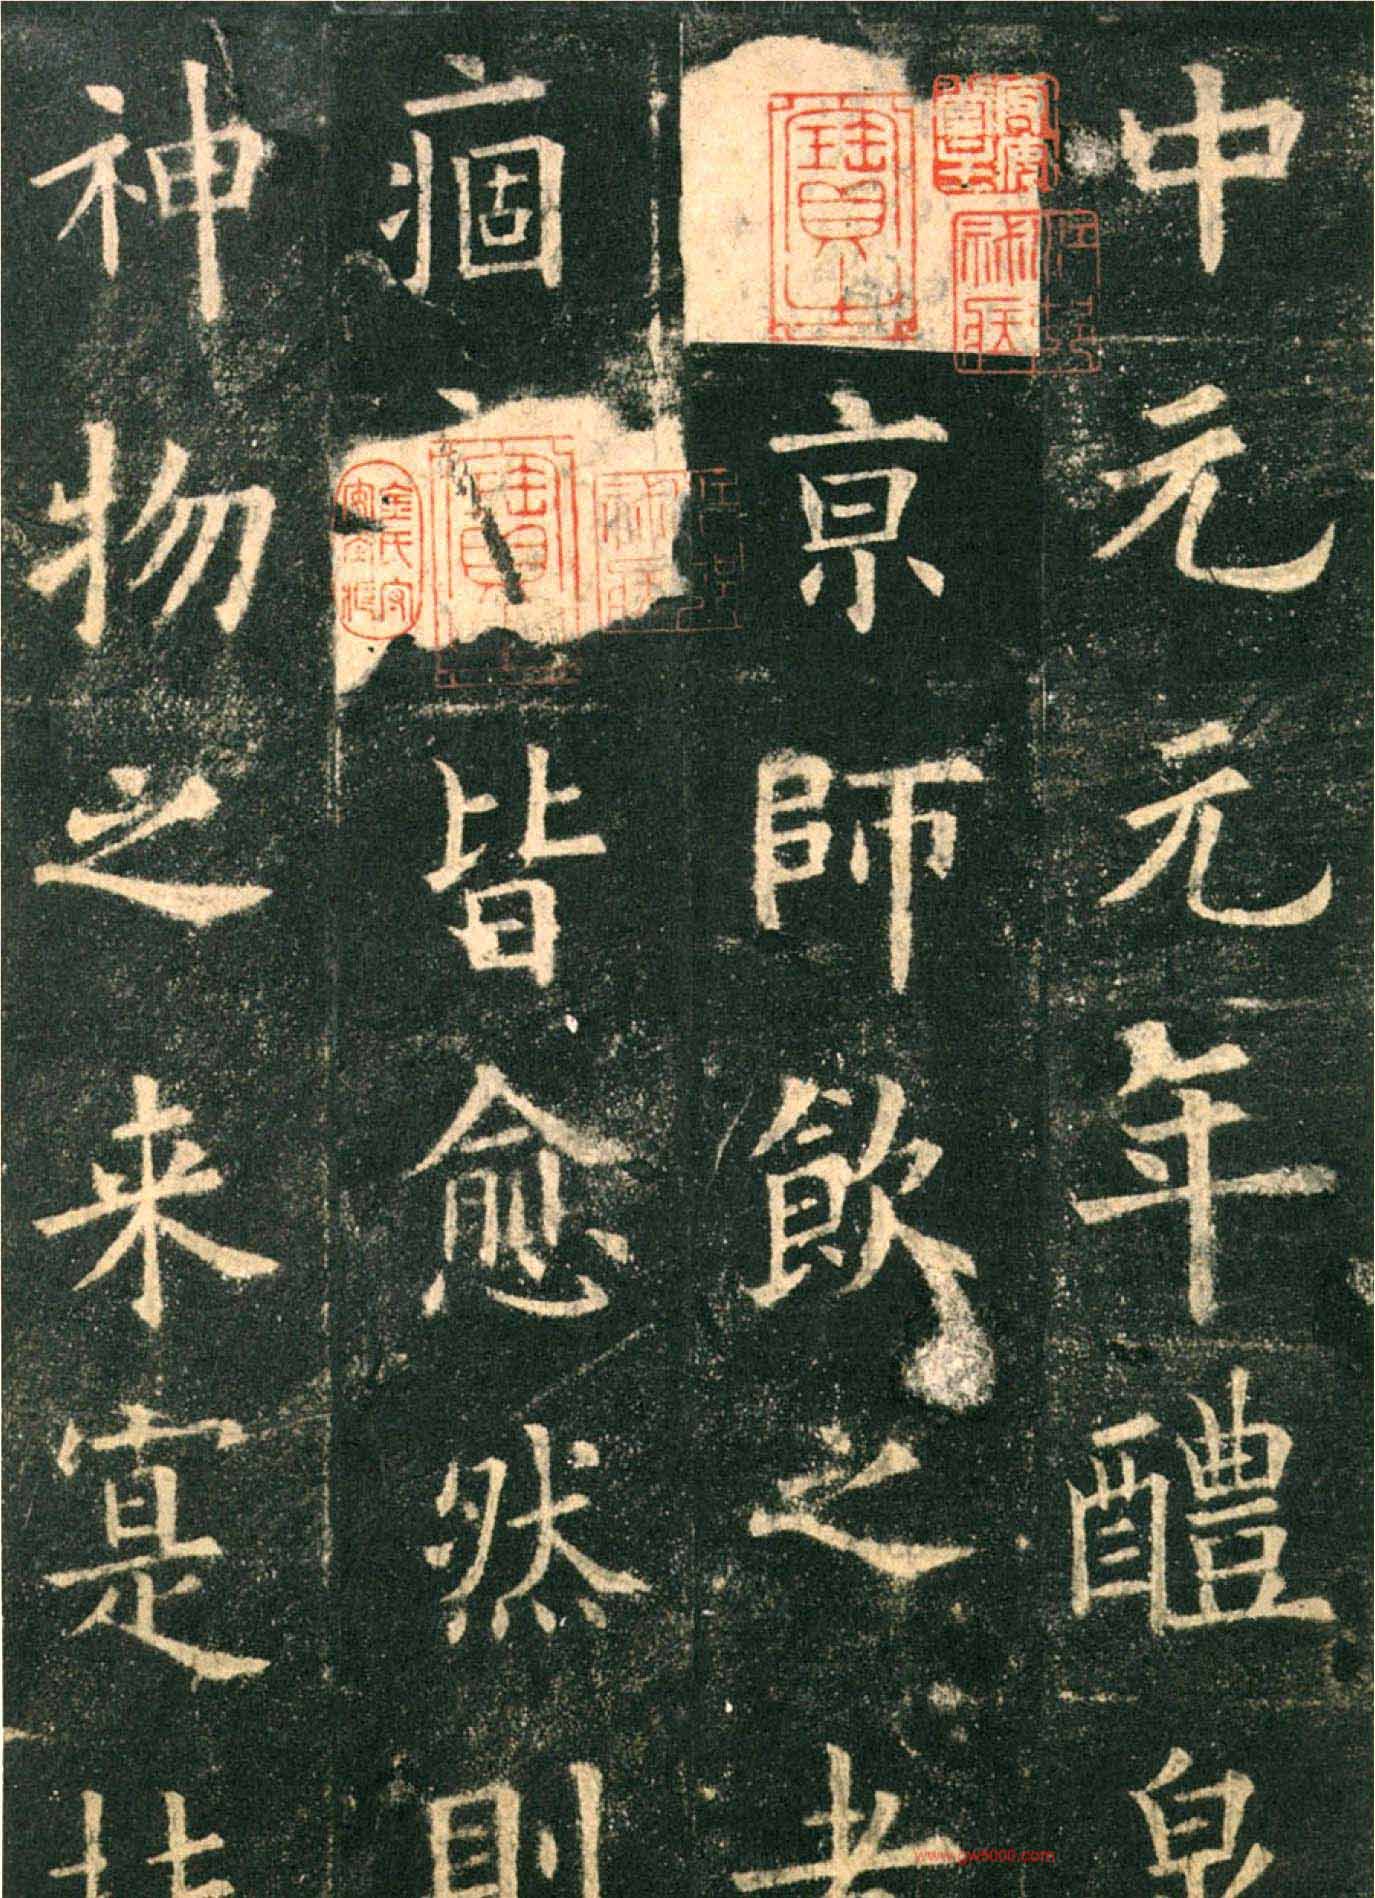 中元元年醴泉
京師飲之者
痼皆愈然則
神物之来寔扶
www.gw5000.com